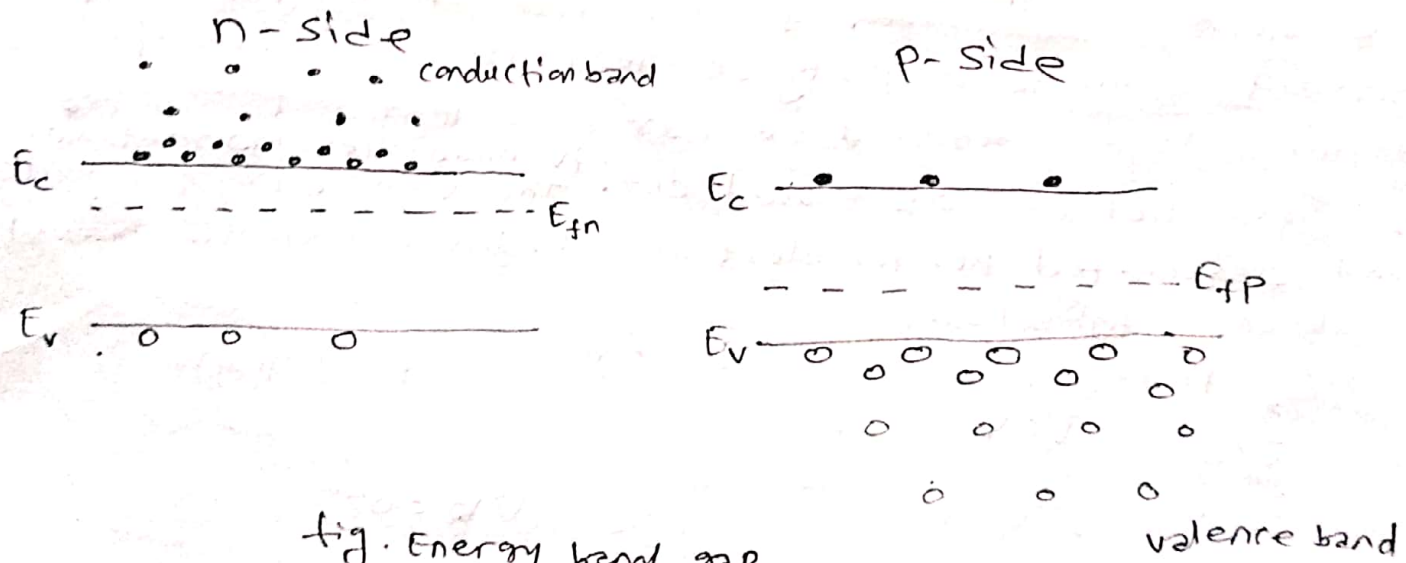 n-side
conduction band
p-side
Ec
Efn
Ev
Ec
Efp
Ev
valence band
fig. Energy band gap